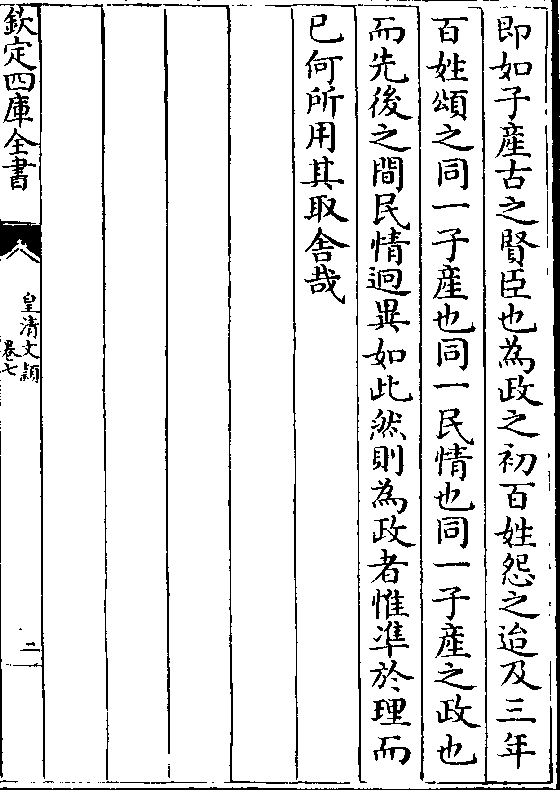 即如子產古之賢臣也為政之初百姓怨之迨及三年
百姓頌之同一子產也同一民情也同一子產之政也
而先後之間民情迥異如此然則為政者惟準於理而
已何所用其取舍哉
欽定四庫全書
皇清文穎
卷七
二